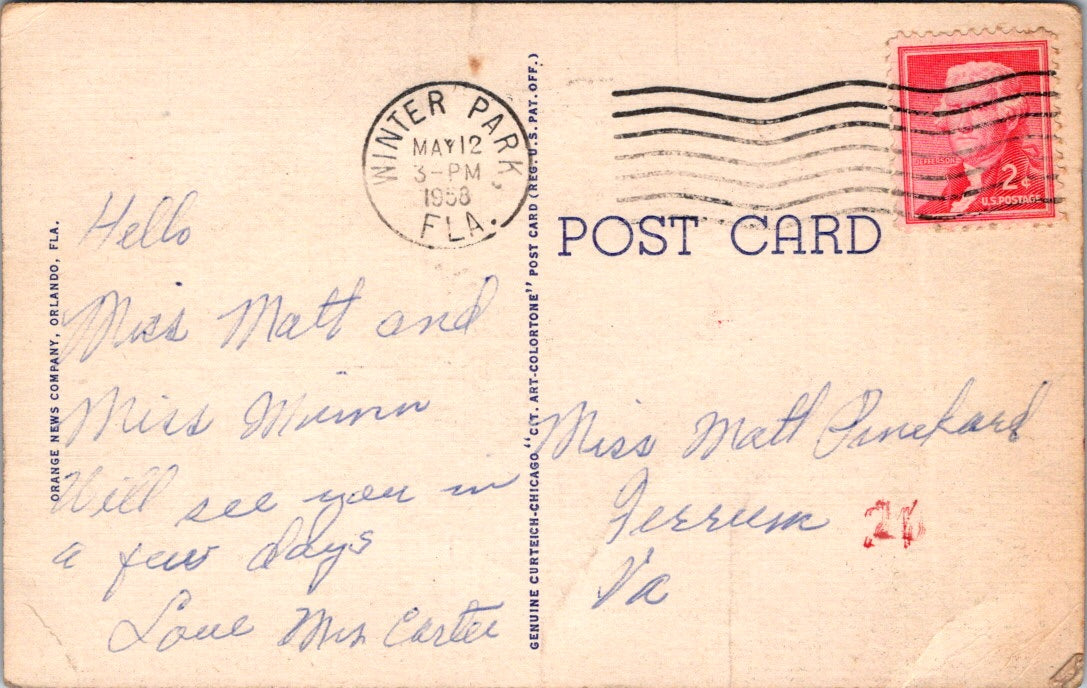 WINTER PARK,
MAY 12
3-PM
1958
FLA.
JEFFERSON
2¢
U.S. POSTAGE
POST CARD
ORANGE NEWS COMPANY, ORLANDO, FLA.
GENUINE CURTEICH-CHICAGO "C.T. ART-COLORTONE" POST CARD (REG. U.S. PAT. OFF.)
Hello
Miss Matt and
Miss
Will see you in
a few days
Love Mrs Carter
Miss Matt Pinckard
Ferrum
Va